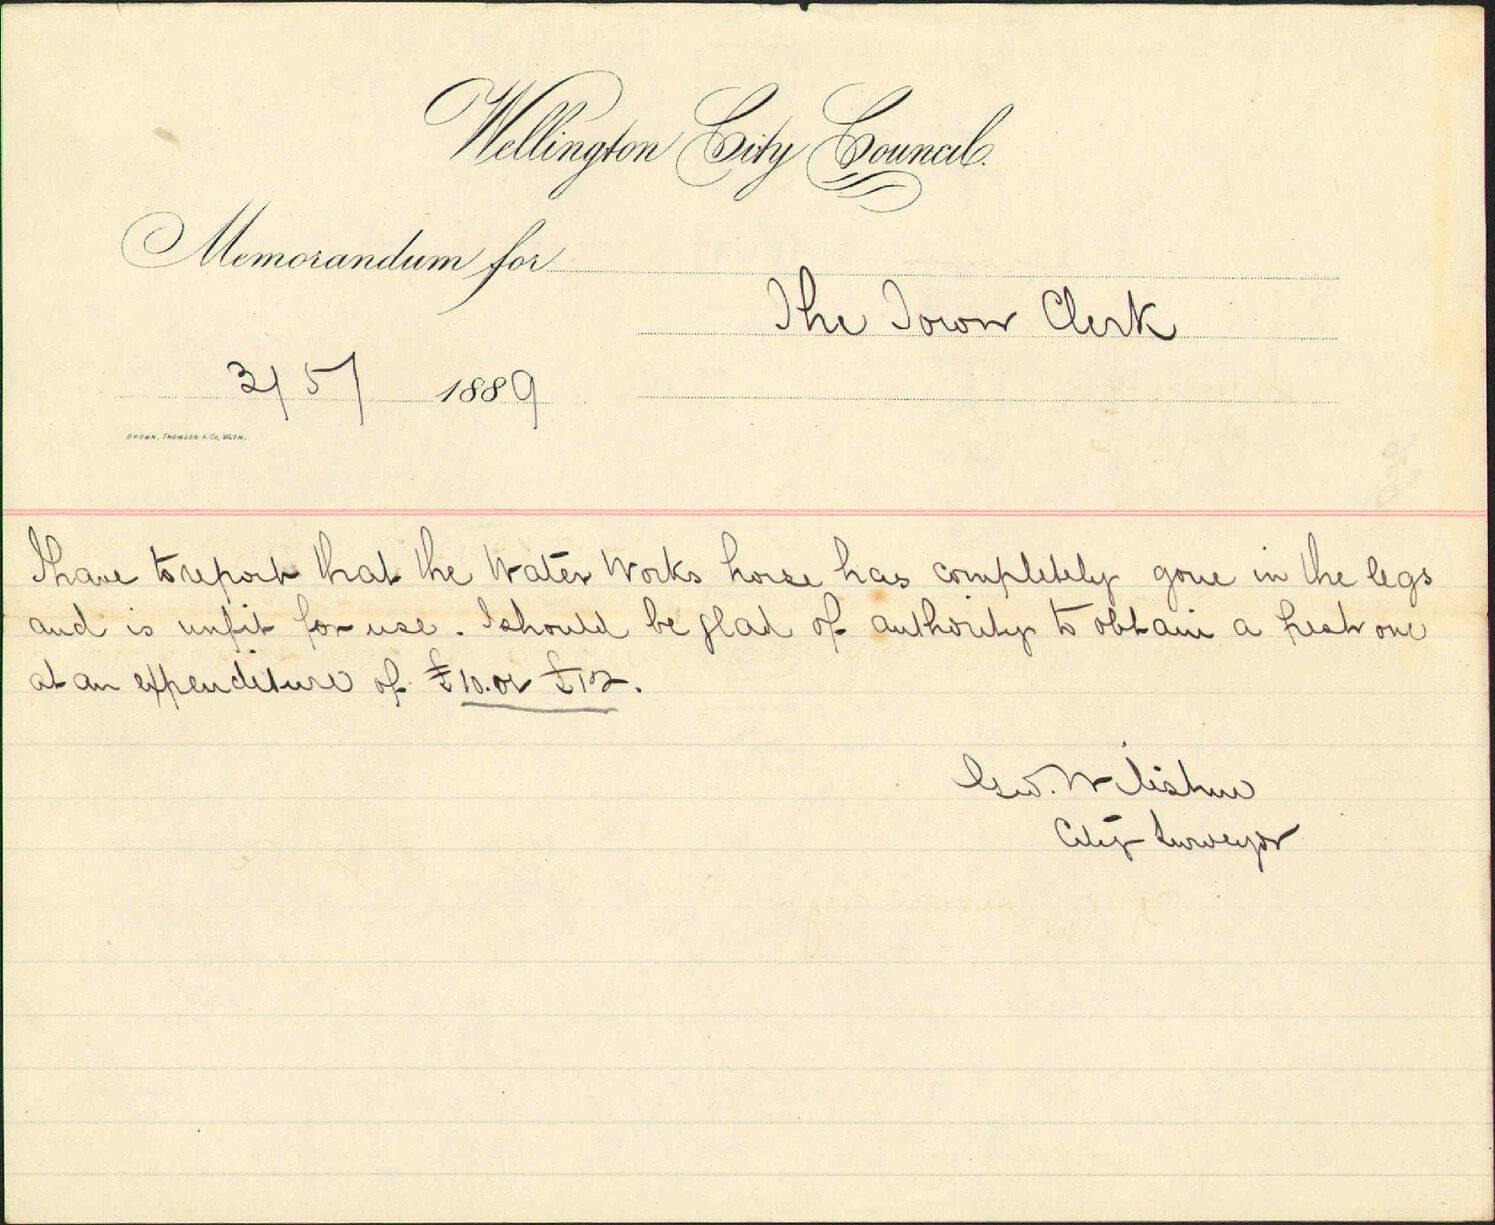 Wellington City Council.
Memorandum for
The Town Clerk
3/5/ 1889
BROWN, THOMSON & Co, WLTN.
I have to report that the Water Works horse has completely gone in the legs
and is unfit for use. I should be glad of authority to obtain a fresh one
at an expenditure of £10. or £12.
Geo. Wiltshire
City Surveyor